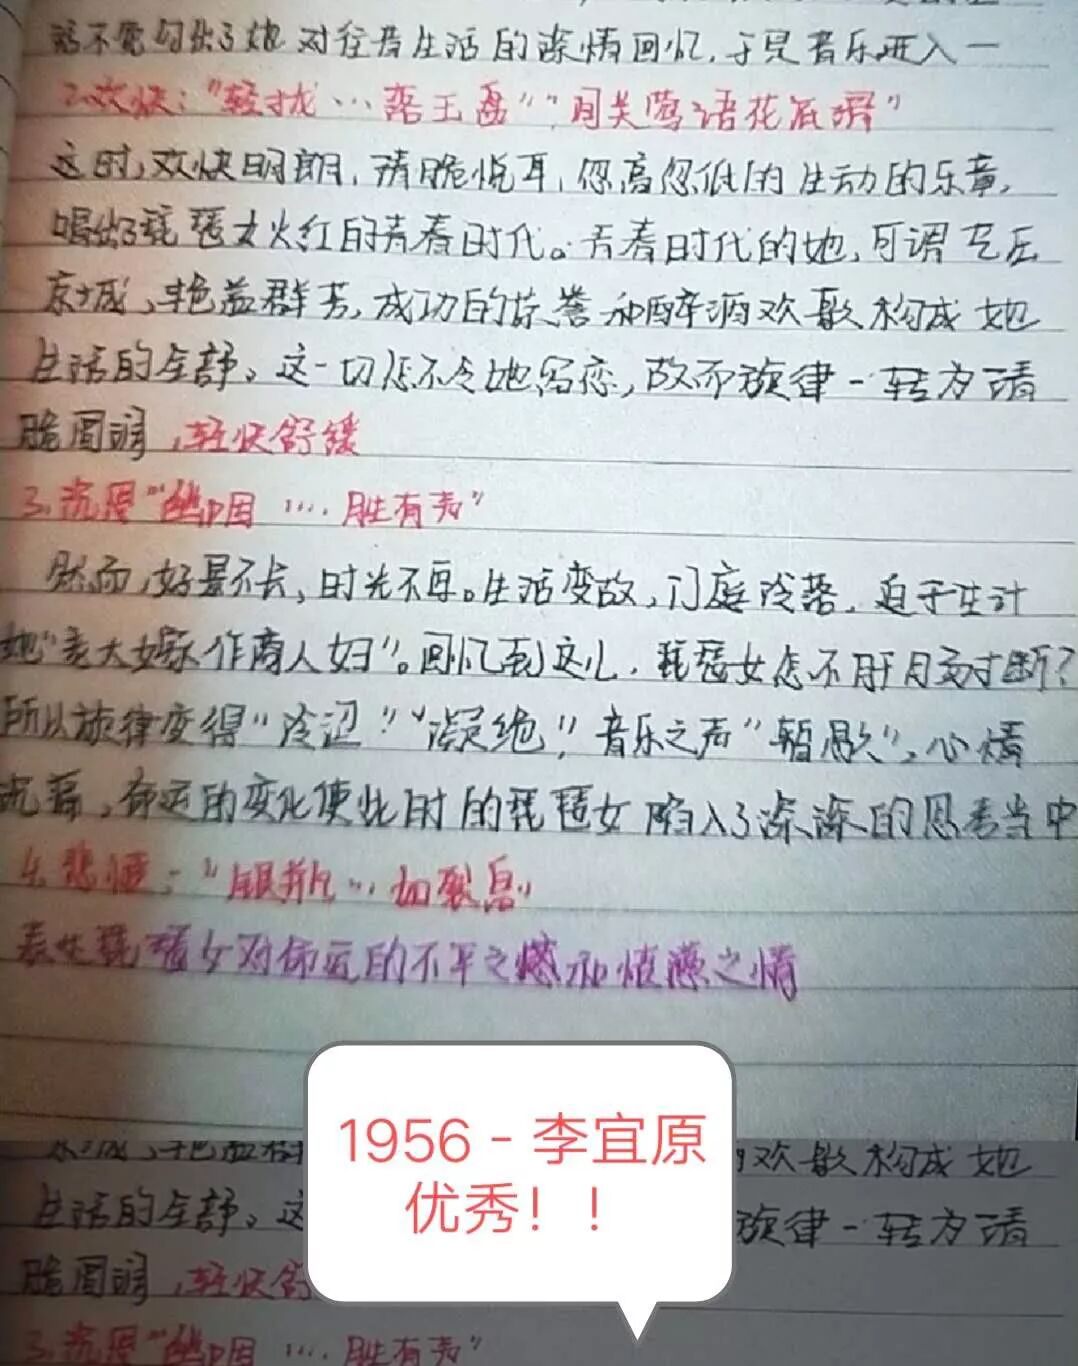 话不觉勾出了她对往昔生活的深情回忆,于是音乐进入一
2.欢快:"轻拢…落玉盘""间关莺语花底滑"
这时,欢快明朗,清脆悦耳,忽高忽低的生动的乐章,
唱出了琵琶女火红的青春时代。青春时代的她,可谓名压
京城,艳益群芳,成功的荣誉和醉酒欢歌构成她
生活的全部。这一切怎不令她留恋,故而旋律一转为清
脆圆润,轻快舒缓
3.沉思"幽咽….胜有声"
然而,好景不长,时光不再。生活变故,门庭冷落,迫于生计
她"老大嫁作商人妇"。回忆到这儿,琵琶女怎不肝肠寸断?
所以旋律变得"冷涩""凝绝",音乐之声"暂歇",心情
沉痛,命运的变化使此时的琵琶女陷入了深深的思考当中
4.悲愤:"银瓶…如裂帛"
表达琵琶女对命运的不平之感和愤懑之情
欢歌构成她
生活的全部。这
旋律一转为清
脆圆润,轻快舒
3.沉思"幽咽….胜有声"
1956-李宜原
优秀!!